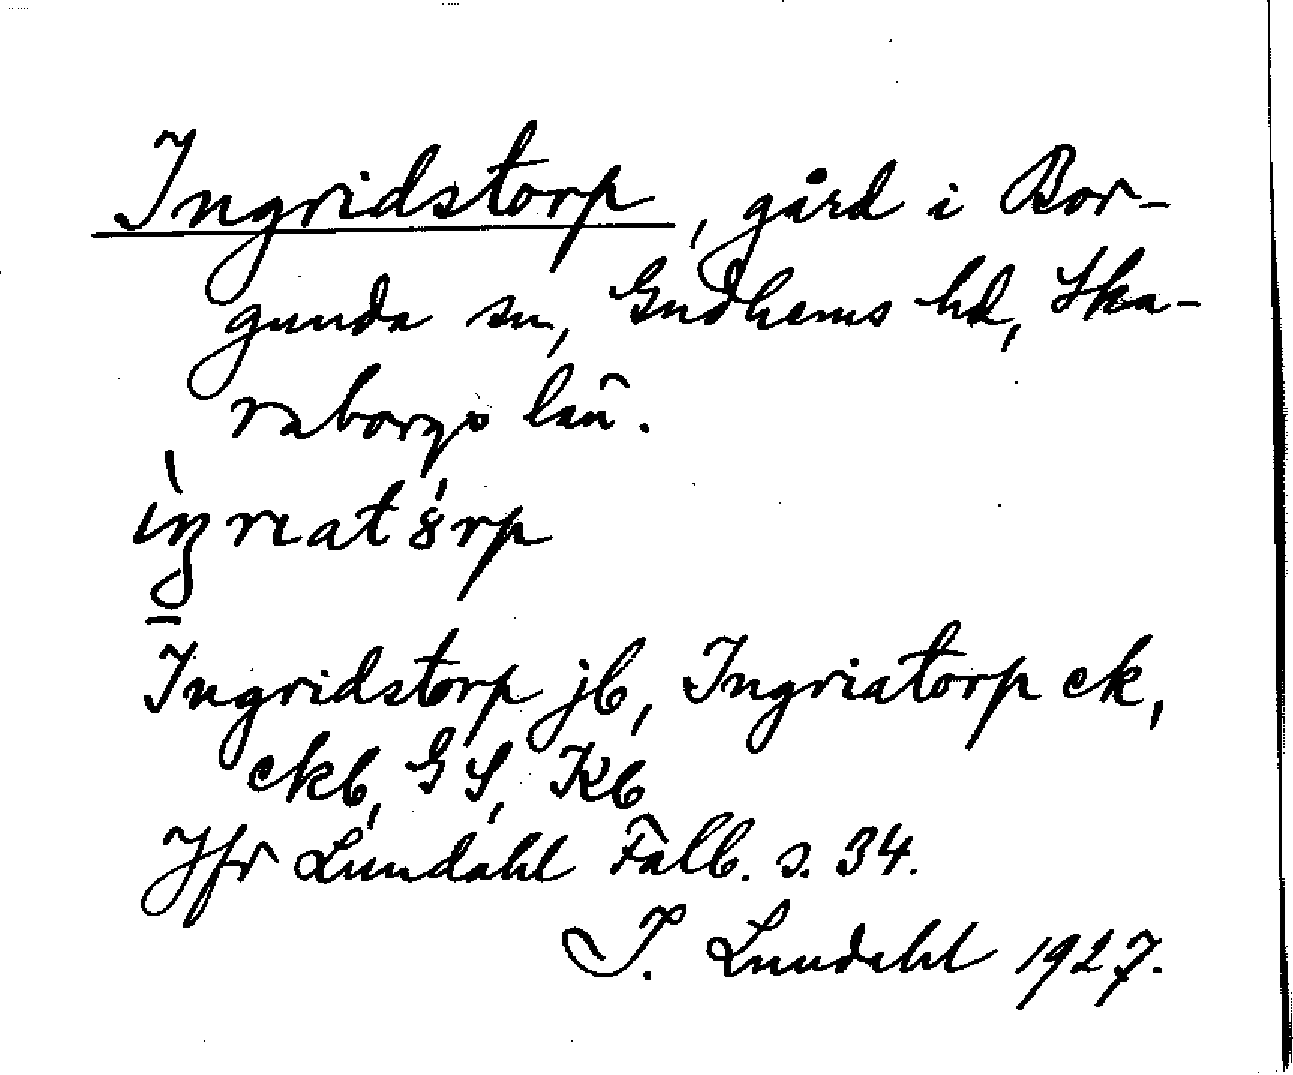 Ingridstorp, gård i Bor-
gunda sn, Gudhems hd, Ska-
raborgs län.
Ingridstorp jb, Ingriatorp ek,
ekb, GS, Kb
Jfr Lundahl Falb. s. 34.
I. Lundahl 1927.